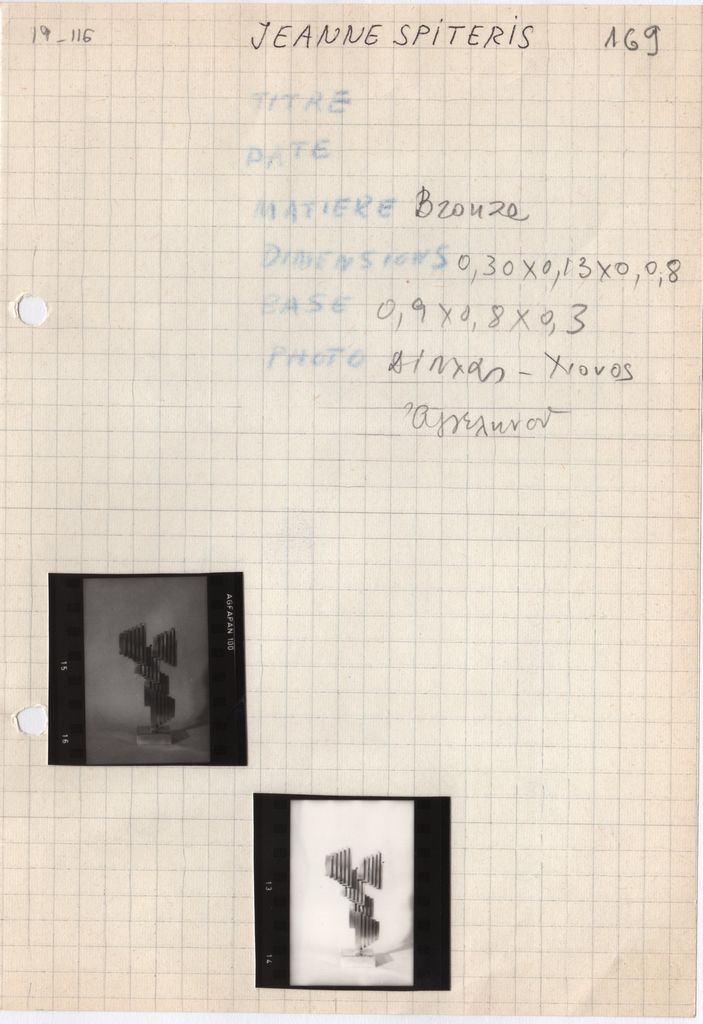 19-116 JEANNE SPITERIS 169
TITRE
DATE
MATIERE Bronze
DIMENSIONS 0,30x0,13x0,0,8
BASE 0,9x0,8x0,3
PHOTO - Χιονος
AGFAPAN 100
15
16
13
14